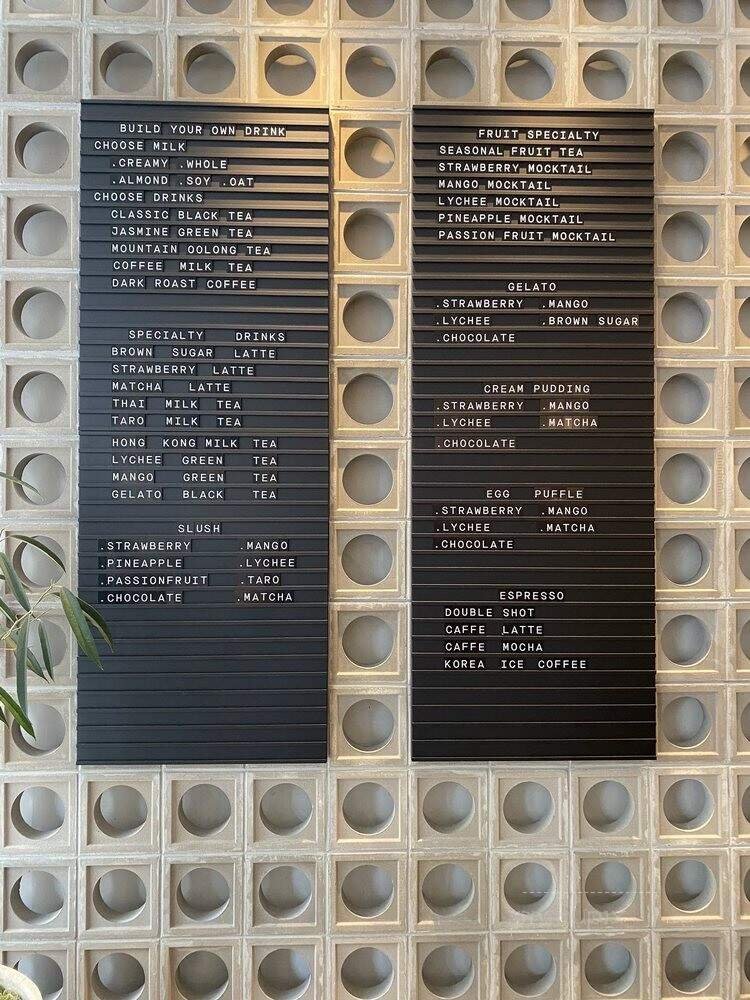 BUILD YOUR OWN DRINK
CHOOSE MILK
.CREAMY .WHOLE
.ALMOND .SOY .OAT
CHOOSE DRINKS
CLASSIC BLACK TEA
JASMINE GREEN TEA
MOUNTAIN OOLONG TEA
COFFEE MILK TEA
DARK ROAST COFFEE
SPECIALTY DRINKS
BROWN SUGAR LATTE
STRAWBERRY LATTE
MATCHA LATTE
THAI MILK TEA
TARO MILK TEA
HONG KONG MILK TEA
LYCHEE GREEN TEA
MANGO GREEN TEA
GELATO BLACK TEA
SLUSH
.STRAWBERRY .MANGO
.PINEAPPLE .LYCHEE
.PASSIONFRUIT .TARO
.CHOCOLATE .MATCHA
FRUIT SPECIALTY
SEASONAL FRUIT TEA
STRAWBERRY MOCKTAIL
MANGO MOCKTAIL
LYCHEE MOCKTAIL
PINEAPPLE MOCKTAIL
PASSION FRUIT MOCKTAIL
GELATO
.STRAWBERRY .MANGO
.LYCHEE .BROWN SUGAR
.CHOCOLATE
CREAM PUDDING
.STRAWBERRY .MANGO
.LYCHEE .MATCHA
.CHOCOLATE
EGG PUFFLE
.STRAWBERRY .MANGO
.LYCHEE .MATCHA
.CHOCOLATE
ESPRESSO
DOUBLE SHOT
CAFFE LATTE
CAFFE MOCHA
KOREA ICE COFFEE